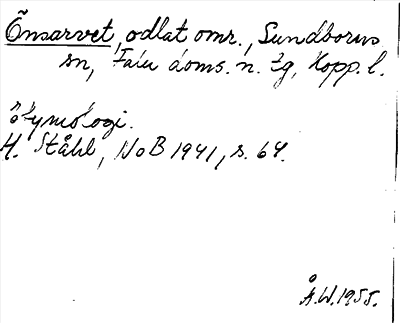 Õnsarvet, odlat omr., Sundborns
sn, Falu doms. n. tg, Kopp. l.
Etymologi.
H. Ståhl, NoB 1941, s. 64.
Å.W. 1955.